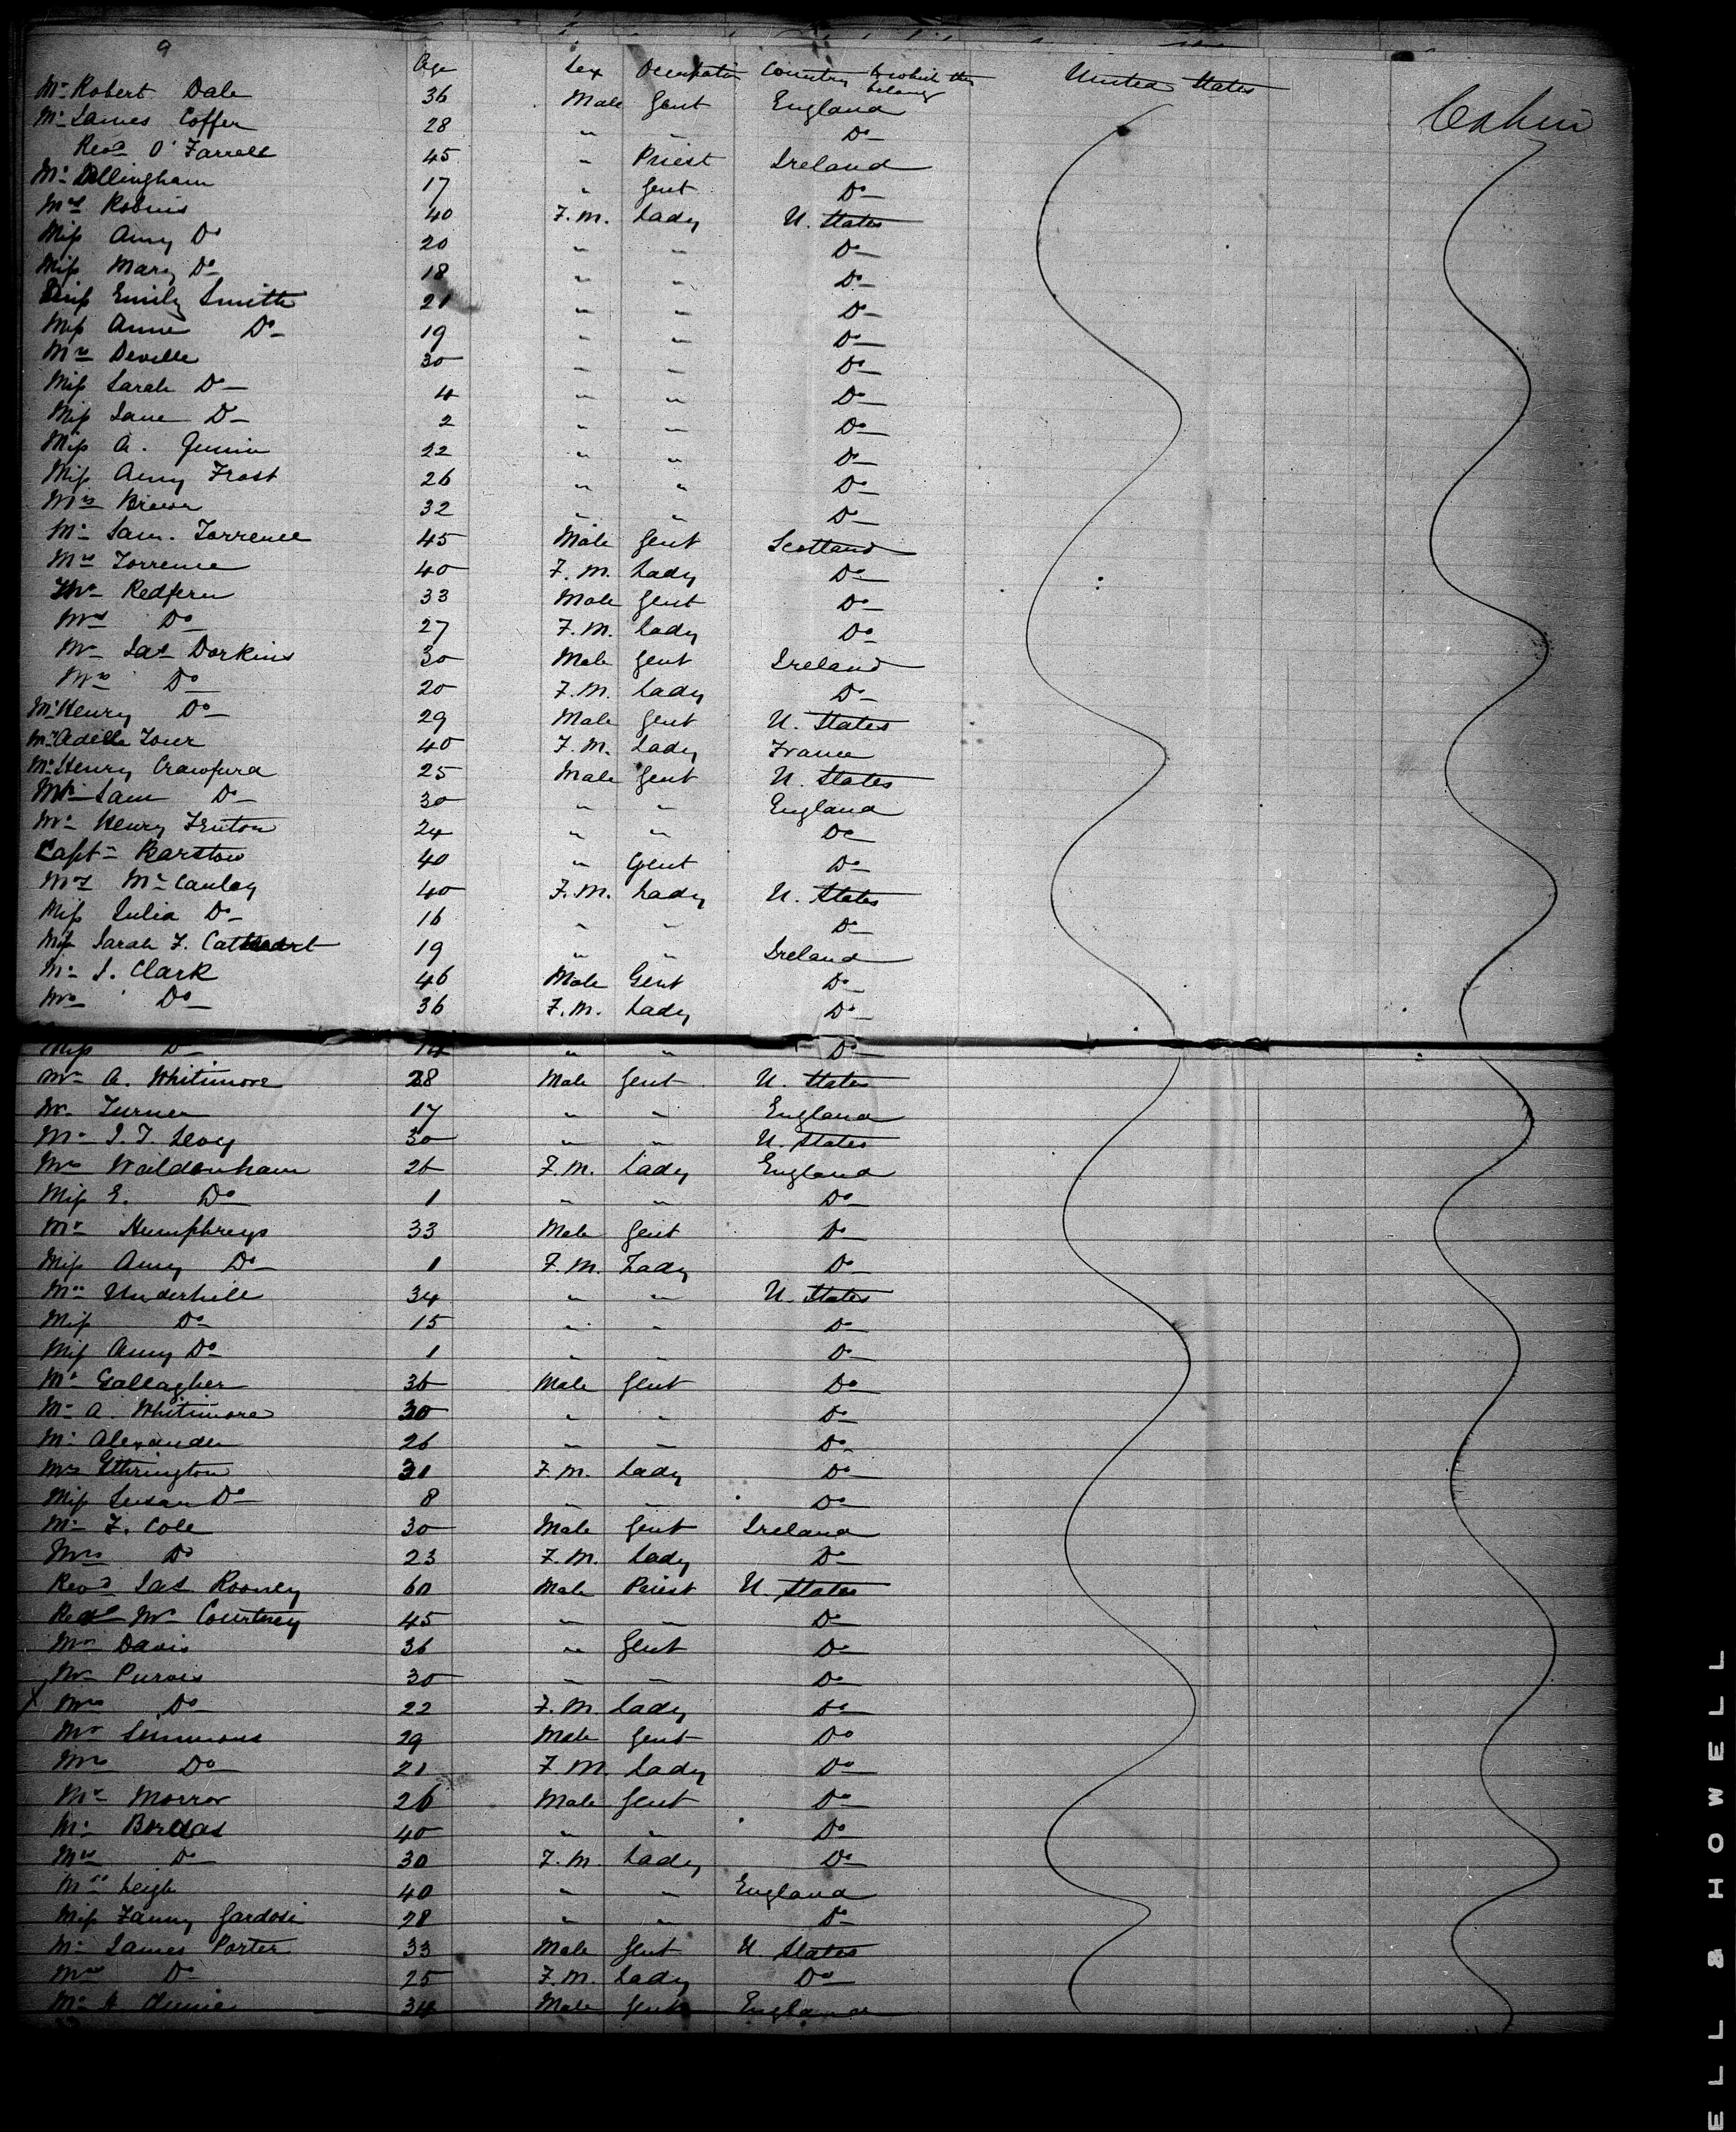 9
Age Sex Occupation Country to which they belong United States
Mr Robert Dale 36 Male Gent England Cabin
Mr James Coffer 28 " " Do
Revd O'Farrell 45 " Priest Ireland
Mr Allingham 17 " Gent Do
Mrs Robins 40 F.M. Lady U. States
Miss Amy Do 20 " " Do
Miss Mary Do 18 " " Do
Miss Emily Smith 21 " " Do
Miss Anne Do 19 " " Do
Mrs Deville 30 " " Do
Miss Sarah Do 4 " " Do
Miss Jane Do 2 " " Do
Miss A. 22 " " Do
Miss Amy Frost 26 " " Do
Mrs Brewer 32 " " Do
Mr Sam. Torrence 45 Male Gent Scotland
Mrs Torrence 40 F.M. Lady Do
Mr Redfern 33 Male Gent Do
Mrs Do 27 F.M. Lady Do
Mr Jas Dorkins 30 Male Gent Ireland
Mrs Do 20 F.M. Lady Do
Mr Henry Do 29 Male Gent U. States
Adelle 40 F.M. Lady France
Mr Henry Crawfurd 25 Male Gent U. States
Mr Sam Do 30 " " England
Mr Henry Fenton 24 " " Do
Capt Barstow 40 " Gent Do
Mrs McCauley 40 F.M. Lady U. States
Miss Julia Do 16 " " Do
Miss Sarah F. Cathcart 19 " " Ireland
Mr J. Clark 46 Male Gent Do
Mrs Do 36 F.M. Lady Do
Miss Do 14 " " Do
Mr A. Whitimore 28 Male Gent U. States
Mr Turner 17 " " England
Mr J. T. Levy 30 " " U. States
Mrs Waldenham 26 F.M. Lady England
Miss E. Do 1 " " Do
Mr Humphreys 33 Male Gent Do
Miss Amy Do 1 F.M. Lady Do
Mrs Underhill 34 " " U. States
Miss Do 15 " " Do
Miss Amy Do 1 " " Do
Mr Gallagher 36 Male Gent Do
Mr A. Whitimore 30 " " Do
Mr Alexander 26 " " Do
Mrs Ethrington 31 F.M. Lady Do
Miss Susan Do 8 " " Do
Mr F. Cole 30 Male Gent Ireland
Mrs Do 23 F.M. Lady Do
Revd Jas Rooney 60 Male Priest U. States
Revd Mr Courtney 45 " " Do
Mr Davis 36 " Gent Do
Mr Purvis 30 " " Do
X Mrs Do 22 F.M. Lady Do
Mr Simmons 29 Male Gent Do
Mrs Do 21 F.M. Lady Do
Mr Morror 26 Male Gent Do
Mr Bordas 40 " " Do
Mrs Do 30 F.M. Lady Do
Mrs Leigh 40 " " England
Miss Fanny 28 " " Do
Mr James Porter 33 Male Gent U. States
Mrs Do 25 F.M. Lady Do
Mr 34 Male Gent England
ELL & HOWELL